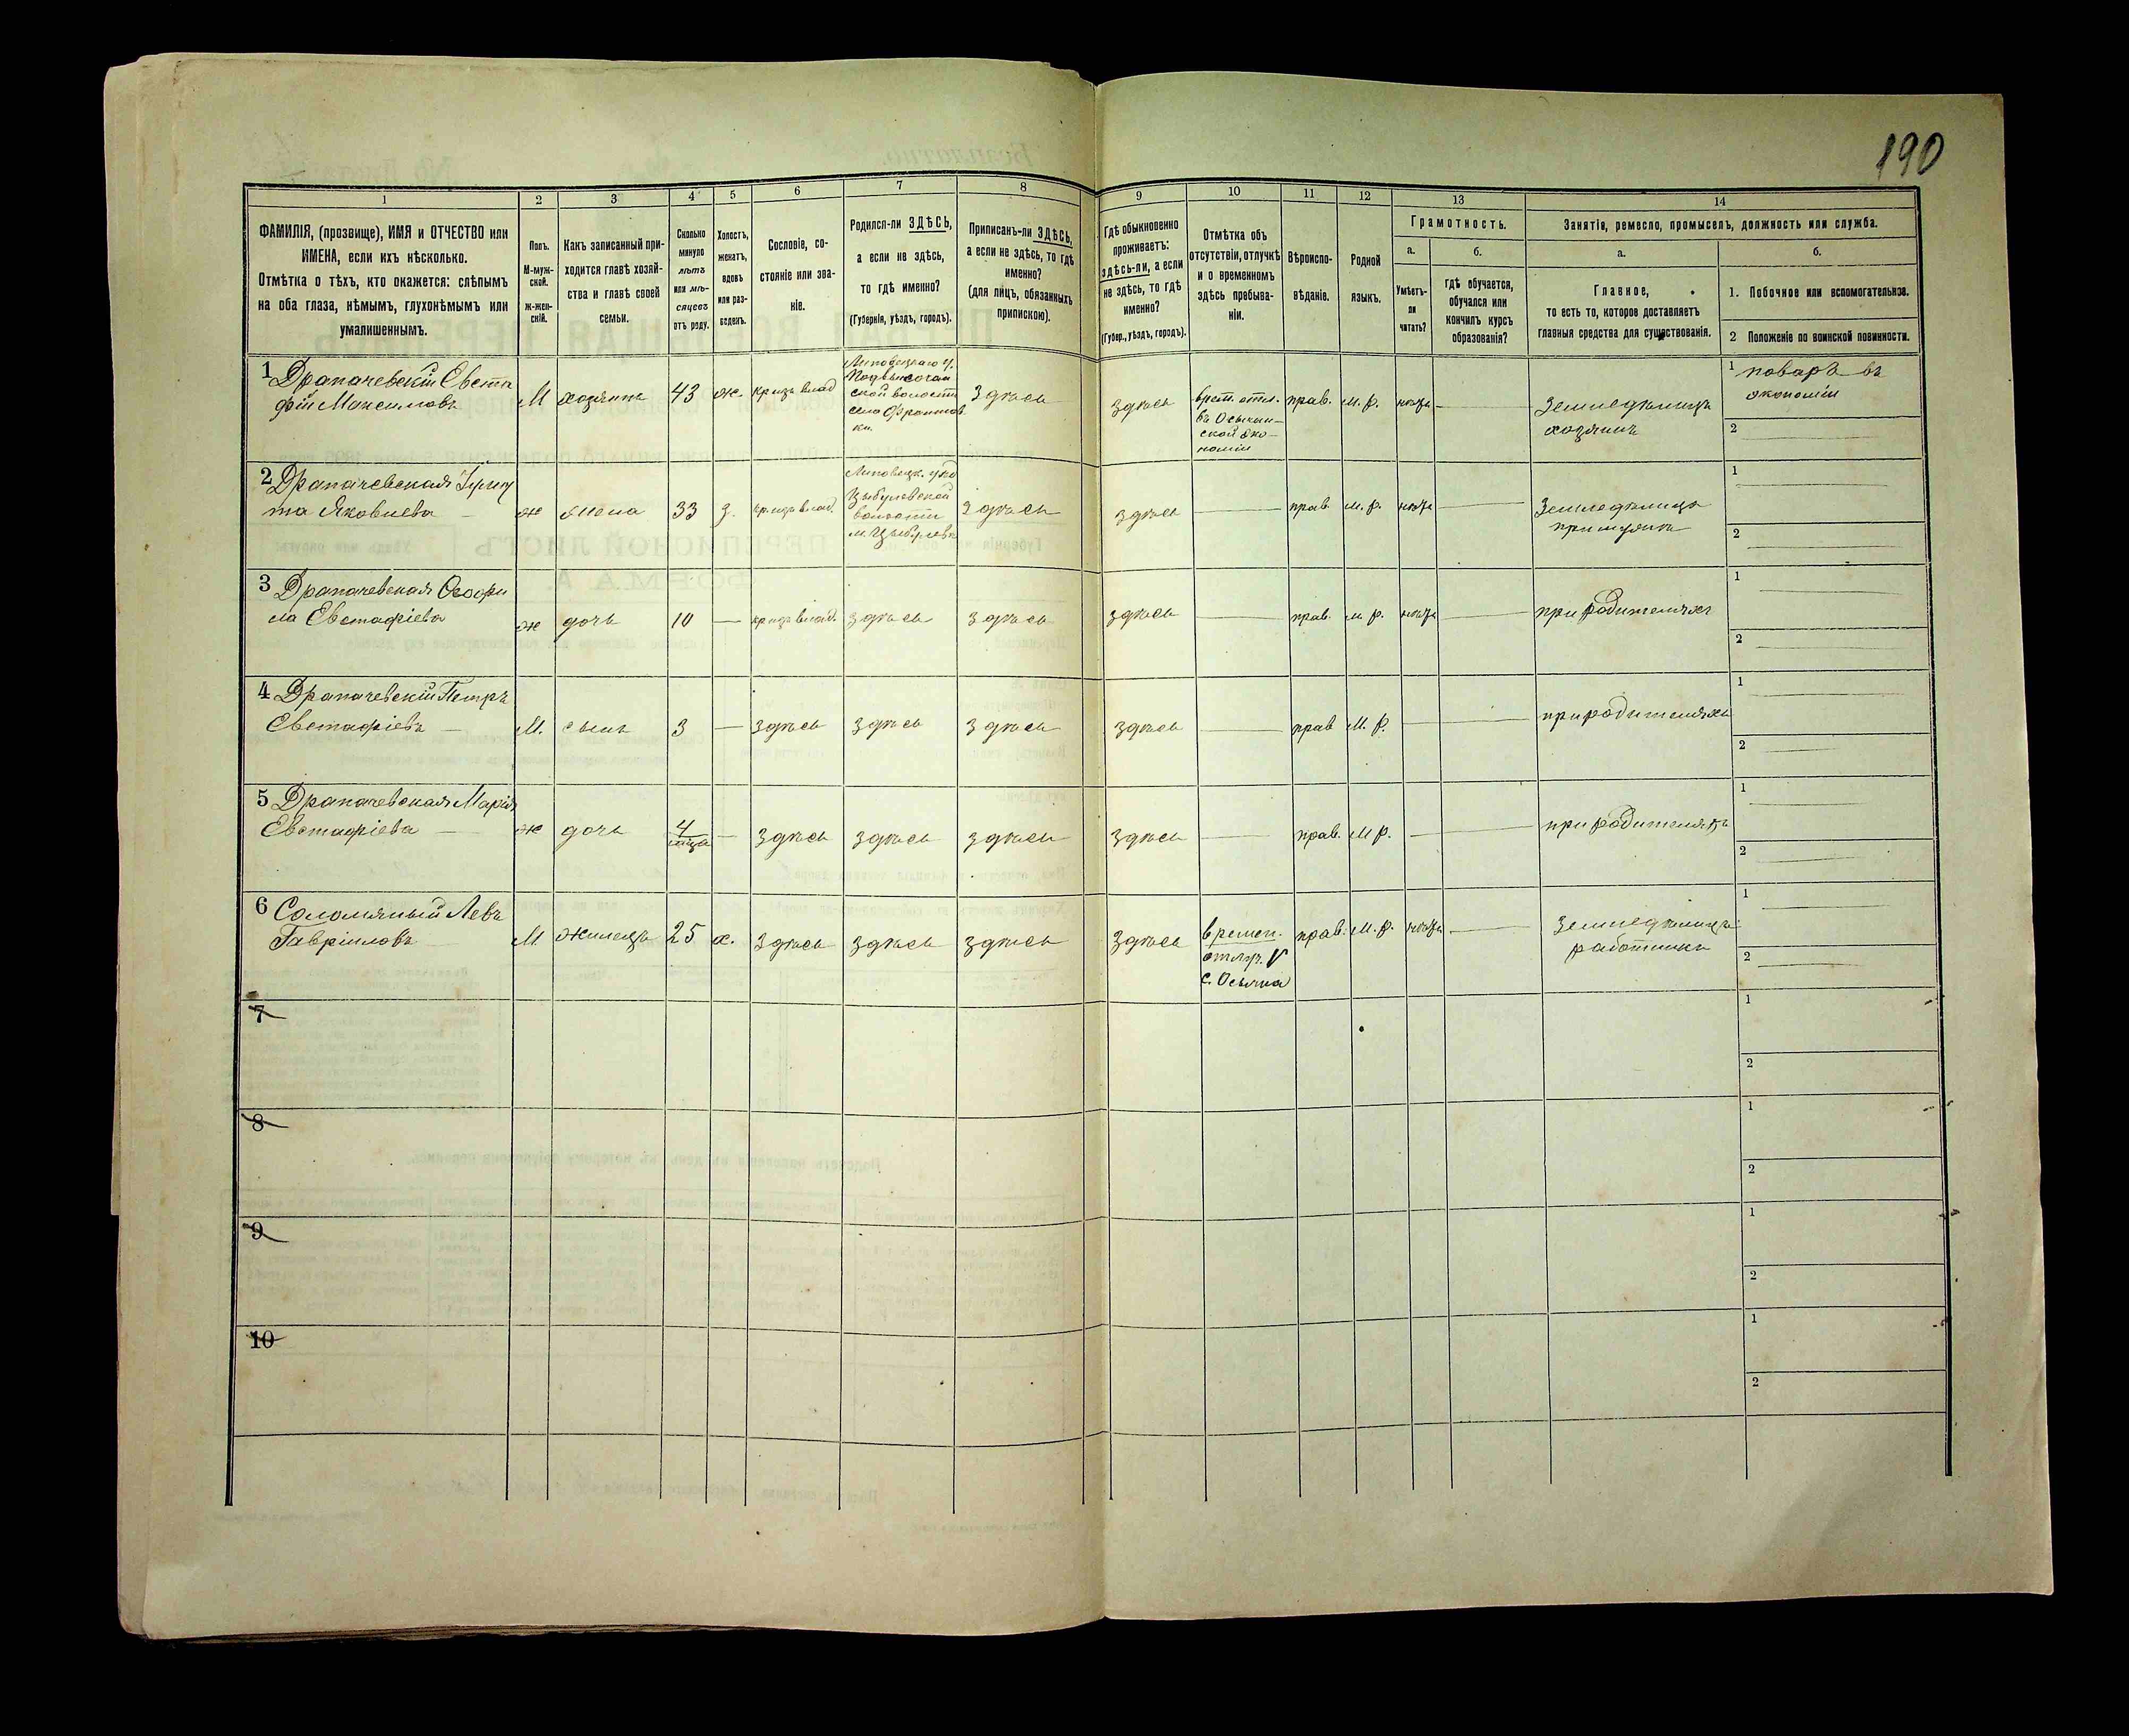 190
1 2 3 4 5 6 7 8 9 10 11 12 13 14
ФАМИЛІЯ, (прозвище), ИМЯ и ОТЧЕСТВО или
ИМЕНА, если ихъ нѣсколько.
Отмѣтка о тѣхъ, кто окажется: слѣпымъ
на оба глаза, нѣмымъ, глухонѣмымъ или
умалишеннымъ.
Полъ.
М-муж-
ской.
ж-жен-
скій.
Какъ записанный при-
ходится главѣ хозяй-
ства и главѣ своей
семьи.
Сколько
минуло
лѣтъ
или мѣ-
сяцевъ
отъ роду.
Холостъ,
женатъ,
вдовъ
или раз-
веденъ.
Сословіе, со-
стояніе или зва-
ніе.
Родился-ли ЗДѢСЬ,
а если не здѣсь,
то гдѣ именно?
(Губернія, уѣздъ, городъ).
Приписанъ-ли ЗДѢСЬ,
а если не здѣсь, то гдѣ
именно?
(для лицъ, обязанныхъ
припискою).
Гдѣ обыкновенно
проживаетъ:
здѣсь-ли, а если
не здѣсь, то гдѣ
именно?
(Губер., уѣздъ, городъ).
Отмѣтка объ
отсутствіи, отлучкѣ
и о временномъ
здѣсь пребыва-
ніи.
Вѣроиспо-
вѣданіе.
Родной
языкъ.
Грамотность.
а.
Умѣетъ-
ли
читать?
б.
гдѣ обучается,
обучался или
кончилъ курсъ
образованія?
Занятія, ремесло, промыселъ, должность или служба.
а.
Главное,
то есть то, которое доставляетъ
главныя средства для существованія.
б.
1. Побочное или вспомогательное.
2 Положеніе по воинской повинности.
1 Драпачевскій Евста
фій Максимовъ
М хозяинъ 43 ж.
Липовецкаго у.
ской волости
здѣсь здѣсь
врем. отл.
ской эко-
номіи
прав. м. р. нѣтъ
Земледѣлецъ
хозяинъ
1 поваръ въ
экономіи
2
2 Драпачевская
та Яковлева
ж жена 33 з.
Липовецк. уѣз
Цыбулевской
волости
здѣсь здѣсь прав. м. р. нѣтъ
Земледѣлица
при мужѣ
1
2
3 Драпачевская Ѳеофи
ла Евстафіева
ж дочь 10 здѣсь здѣсь здѣсь прав. м. р. нѣтъ при родителяхъ
1
2
4 Драпачевскій Петръ
Евстафіевъ
М. сынъ 3 здѣсь здѣсь здѣсь здѣсь прав М. р. при родителяхъ
1
2
5 Драпачевская Марія
Евстафіева
ж дочь 4 мѣся здѣсь здѣсь здѣсь здѣсь прав. М р. при родителяхъ
1
2
6 Соломяный Левъ
Гавріиловъ
М жилецъ 25 х. здѣсь здѣсь здѣсь здѣсь
времен.
отлуч. V
прав. М. р. нѣтъ
Земледѣлецъ
работникъ
1
2
7
1
2
8
1
2
9
1
2
10
1
2